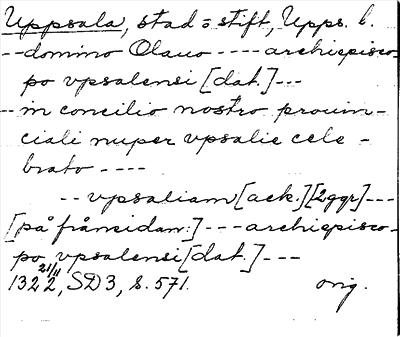 Uppsala, stad o stift, Upps. l.
-- domino Olauo ---- archiepisco-
po vpsalensi [dat.] ---
-- in concilio nostro prouin-
ciali nuper vpsalie cele-
brato ----
-- vpsaliam [ack.] [2ggr] ---
[på frånsidan:] --- archiepisco-
po vpsalensi [dat.] ---
1322 21/11, SD3, s. 571. orig.